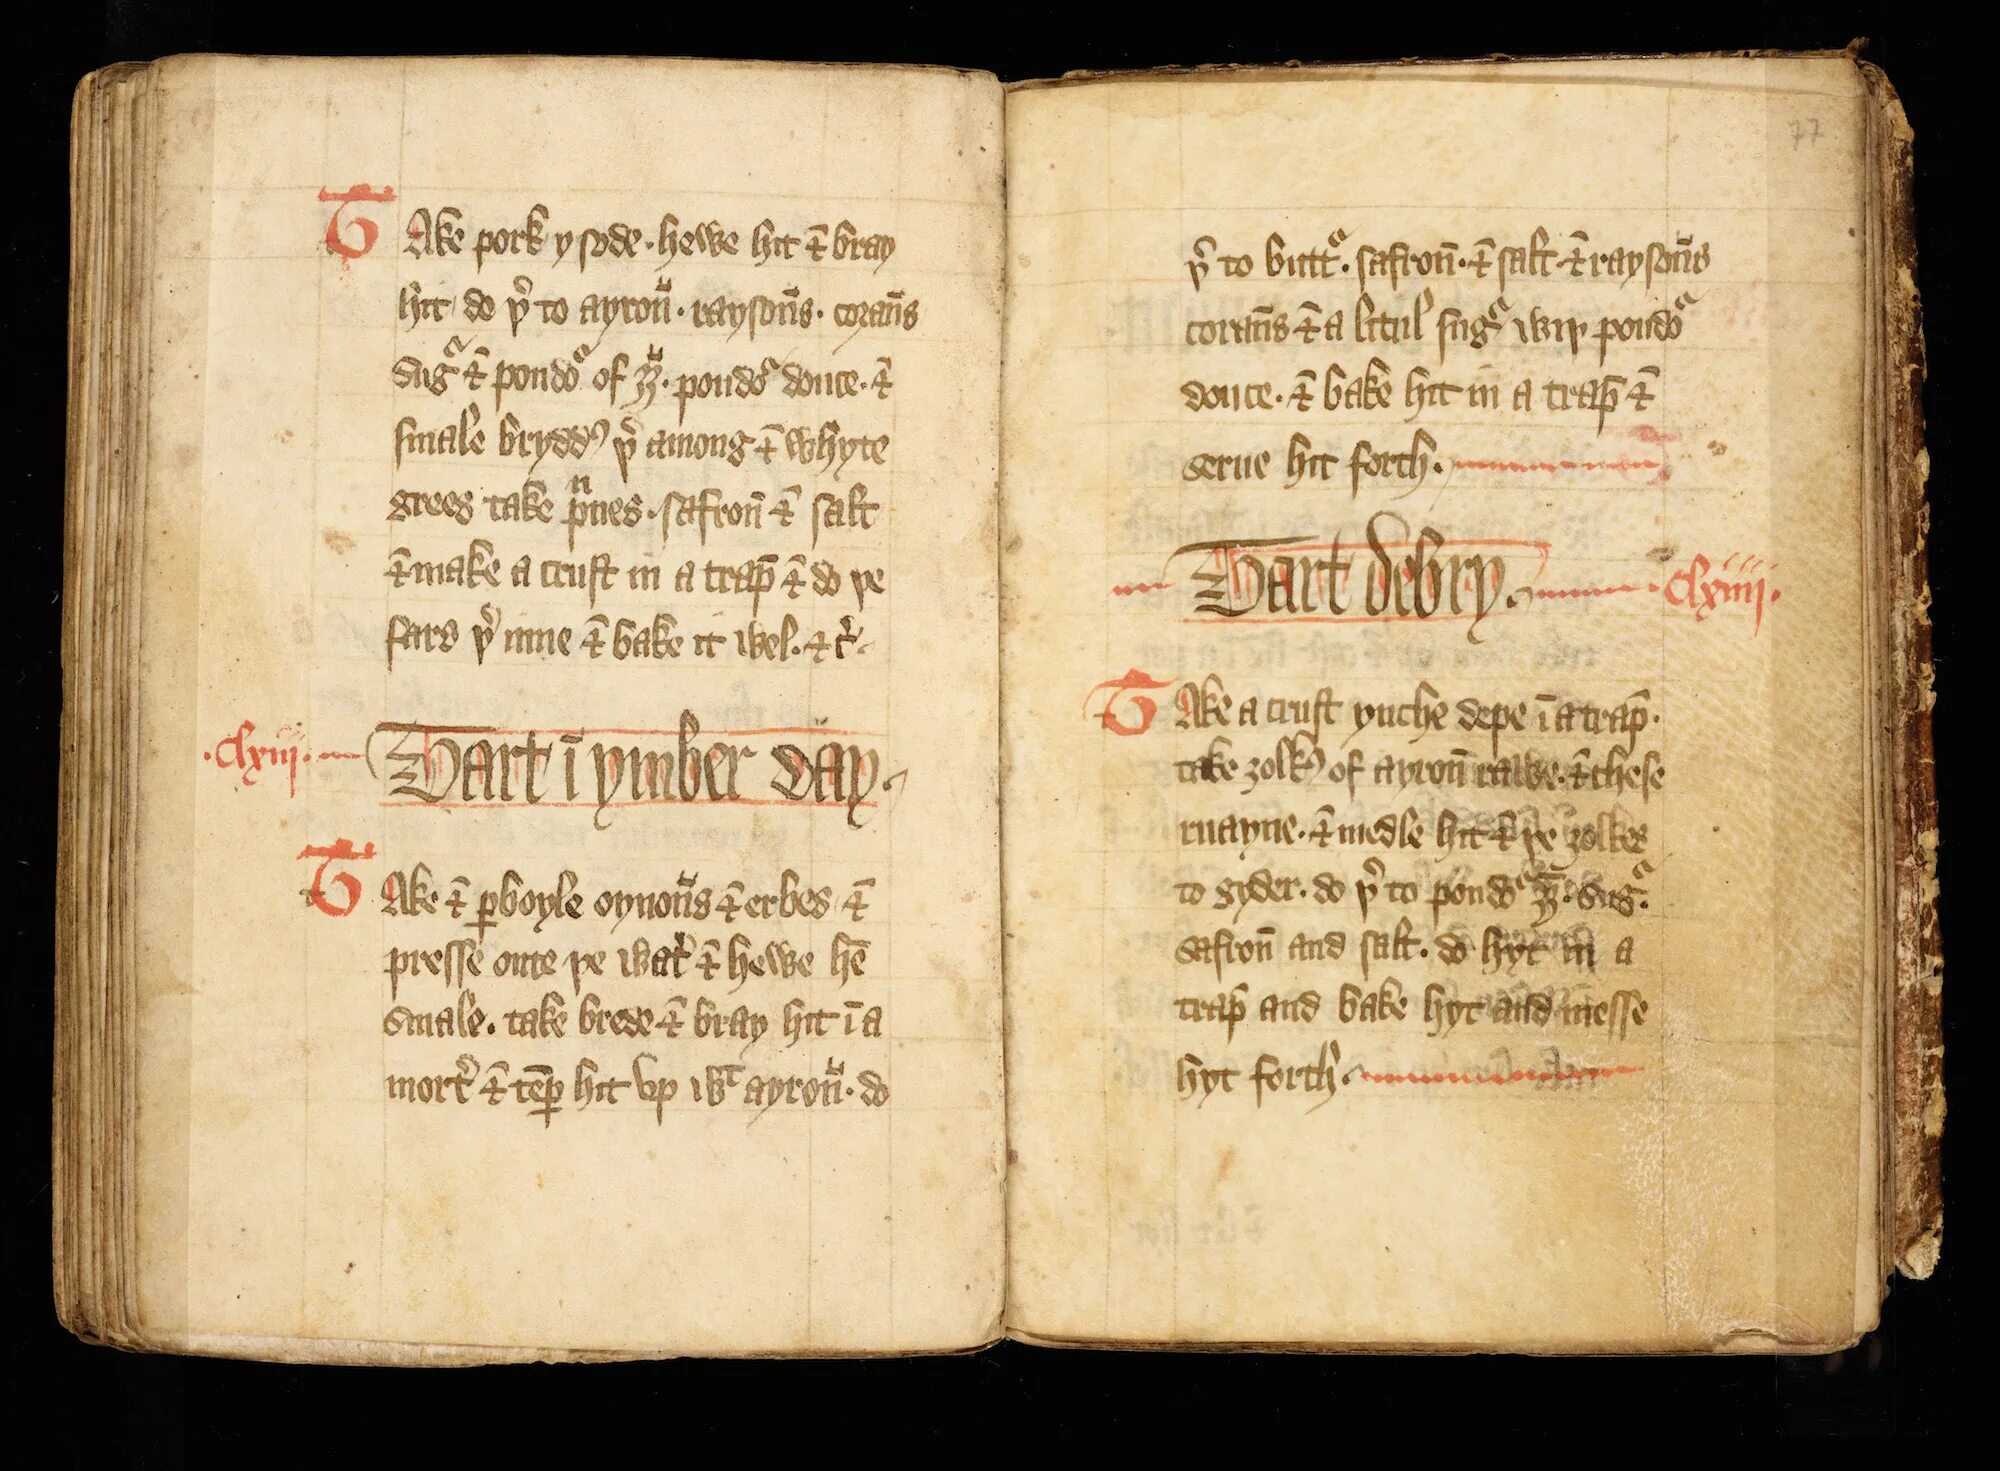 TAke pork y sode. hewe hit ⁊ bray
hit do þͤ to ayroū. raysoūs. coraūs
sugᵃ ⁊ poudoᵃ of gȳg̉. poudoᵃ douce. ⁊
smale brydd̛ þͤ among ⁊ whyte
grees take pͫnes. safron̄ ⁊ salt
⁊ make a crust in a trap̄ ⁊ do þe
fars þͤ inne ⁊ bake it wel. ⁊ c̉.
.Clxiii. Tart ī ymber day.
TAke ⁊ ꝑboyle oynoūs ⁊ erbes ⁊
presse oute þe wat̉ ⁊ hewe hē
smale. take brede ⁊ bray hit ī a
mort̉ ⁊ tēꝑ hit vp wᵗ ayroū. do
77
þͤ to buttᵃ. safron̄. ⁊ salt ⁊ raysoūs
coraūs ⁊ a litul sugᵃ wiþ poudoᵃ
douce. ⁊ bake hit in a trap̄ ⁊
serue hit forth.
Tart de bry. .Clxiiii.
TAke a crust ynche depe ī a trap̄.
take zolk̛ of ayron̄ rawe. ⁊ chese
ruayne. ⁊ medle hit ⁊ þe zolkes
to gyder. do þͤ to poudoᵃ gȳg̉. sugᵃ.
safron̄ and salt. do hyt in a
trap̄ and bake hyt and messe
hyt forth.